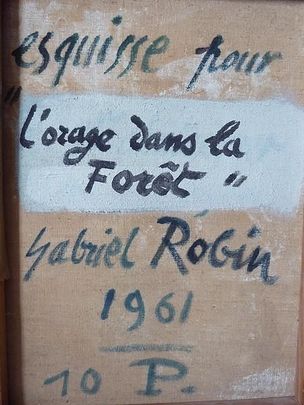 esquisse pour
"L'orage dans la
Forêt"
Gabriel Robin
1961
10 P.